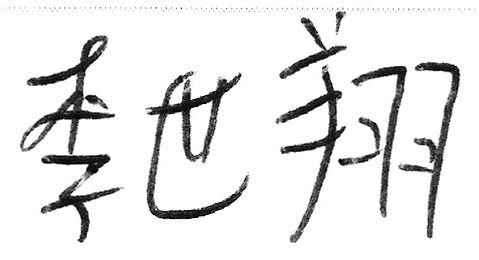 李世翔